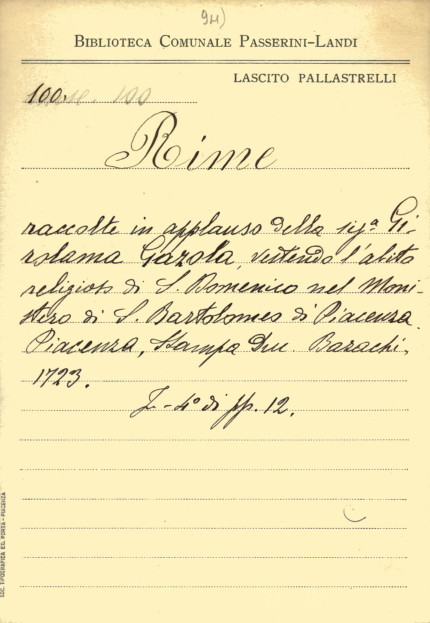 94)
BIBLIOTECA COMUNALE PASSERINI-LANDI
LASCITO PALLASTRELLI
100. 100
Rime
raccolte in applauso della sigª Gi-
rolama Gazola, vestendo l'abito
religioso di S. Domenico nel Moni-
stero di S. Bartolomeo di Piacenza.
Piacenza, Stampa Duc. Bazachi,
1723.
I-4º di pp. 12.
SOC. TIPOGRAFICA ED. PORTA - PIACENZA